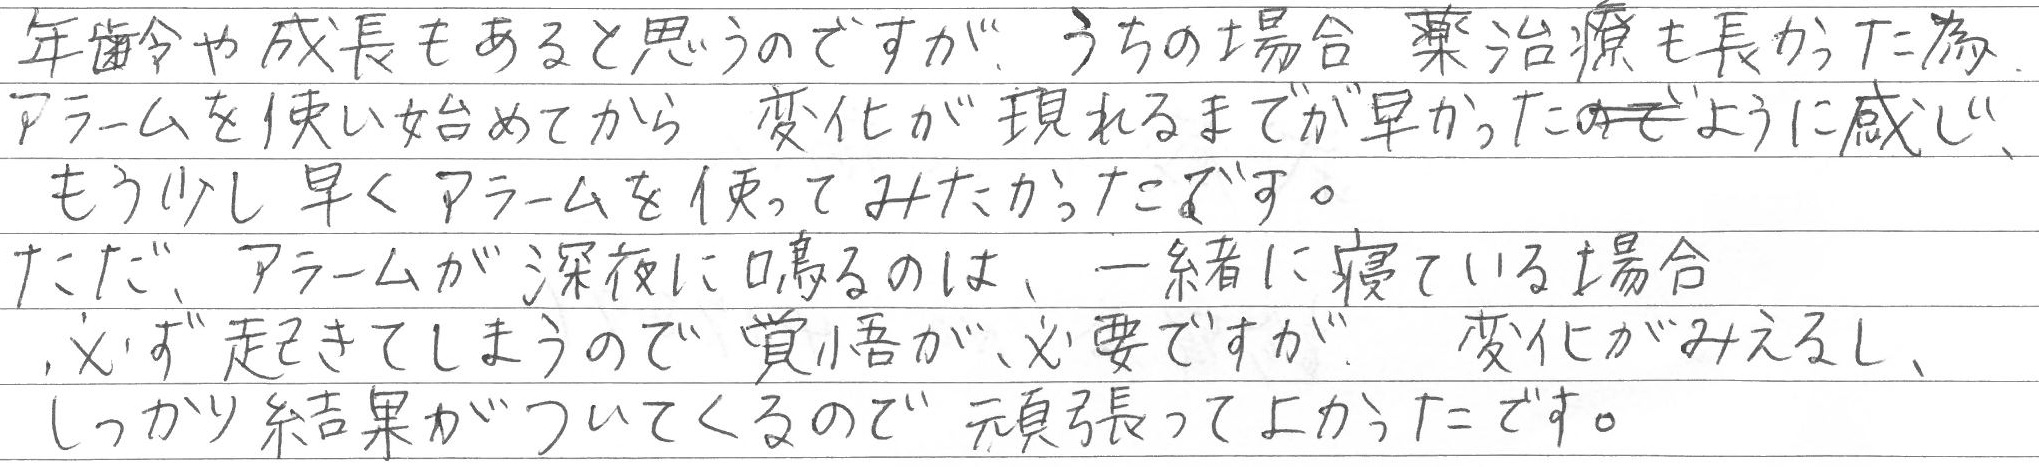 年齢や成長もあると思うのですが、うちの場合 薬治療も長かった為、
アラームを使い始めてから 変化が現れるまでが早かったように感じ、
もう少し早くアラームを使ってみたかったです。
ただ、アラームが深夜に鳴るのは、一緒に寝ている場合
必ず起きてしまうので覚悟が必要ですが、 変化がみえるし、
しっかり結果がついてくるので 頑張ってよかったです。